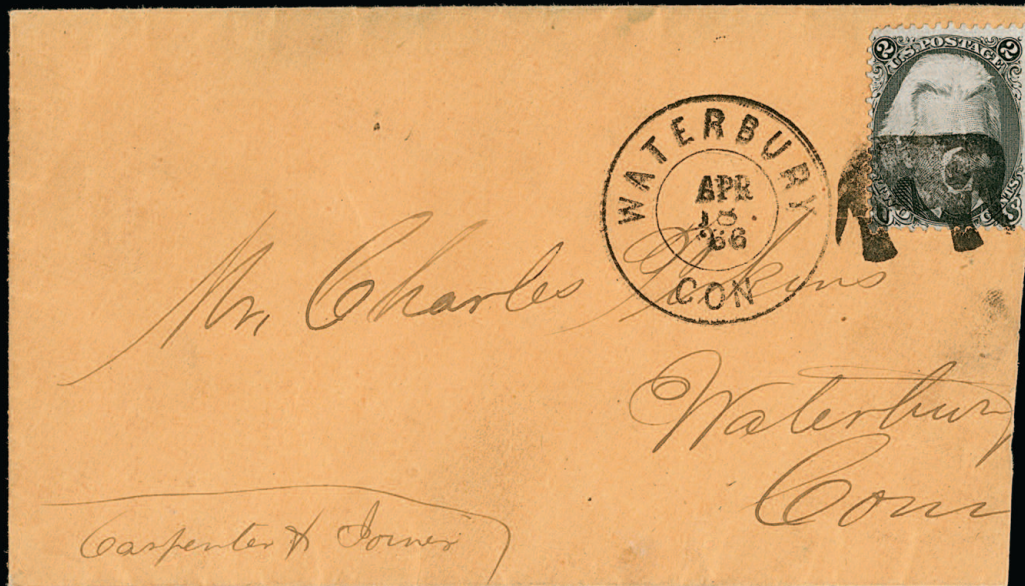 2 U.S. POSTAGE 2
WATERBURY
APR
13
'66
CON
Mr. Charles Perkins
Waterbury
Conn
Carpenter & Joiner